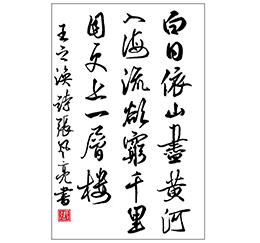 白日依山盡黃河
入海流欲窮千里
目更上一層樓
王之渙詩張亮書